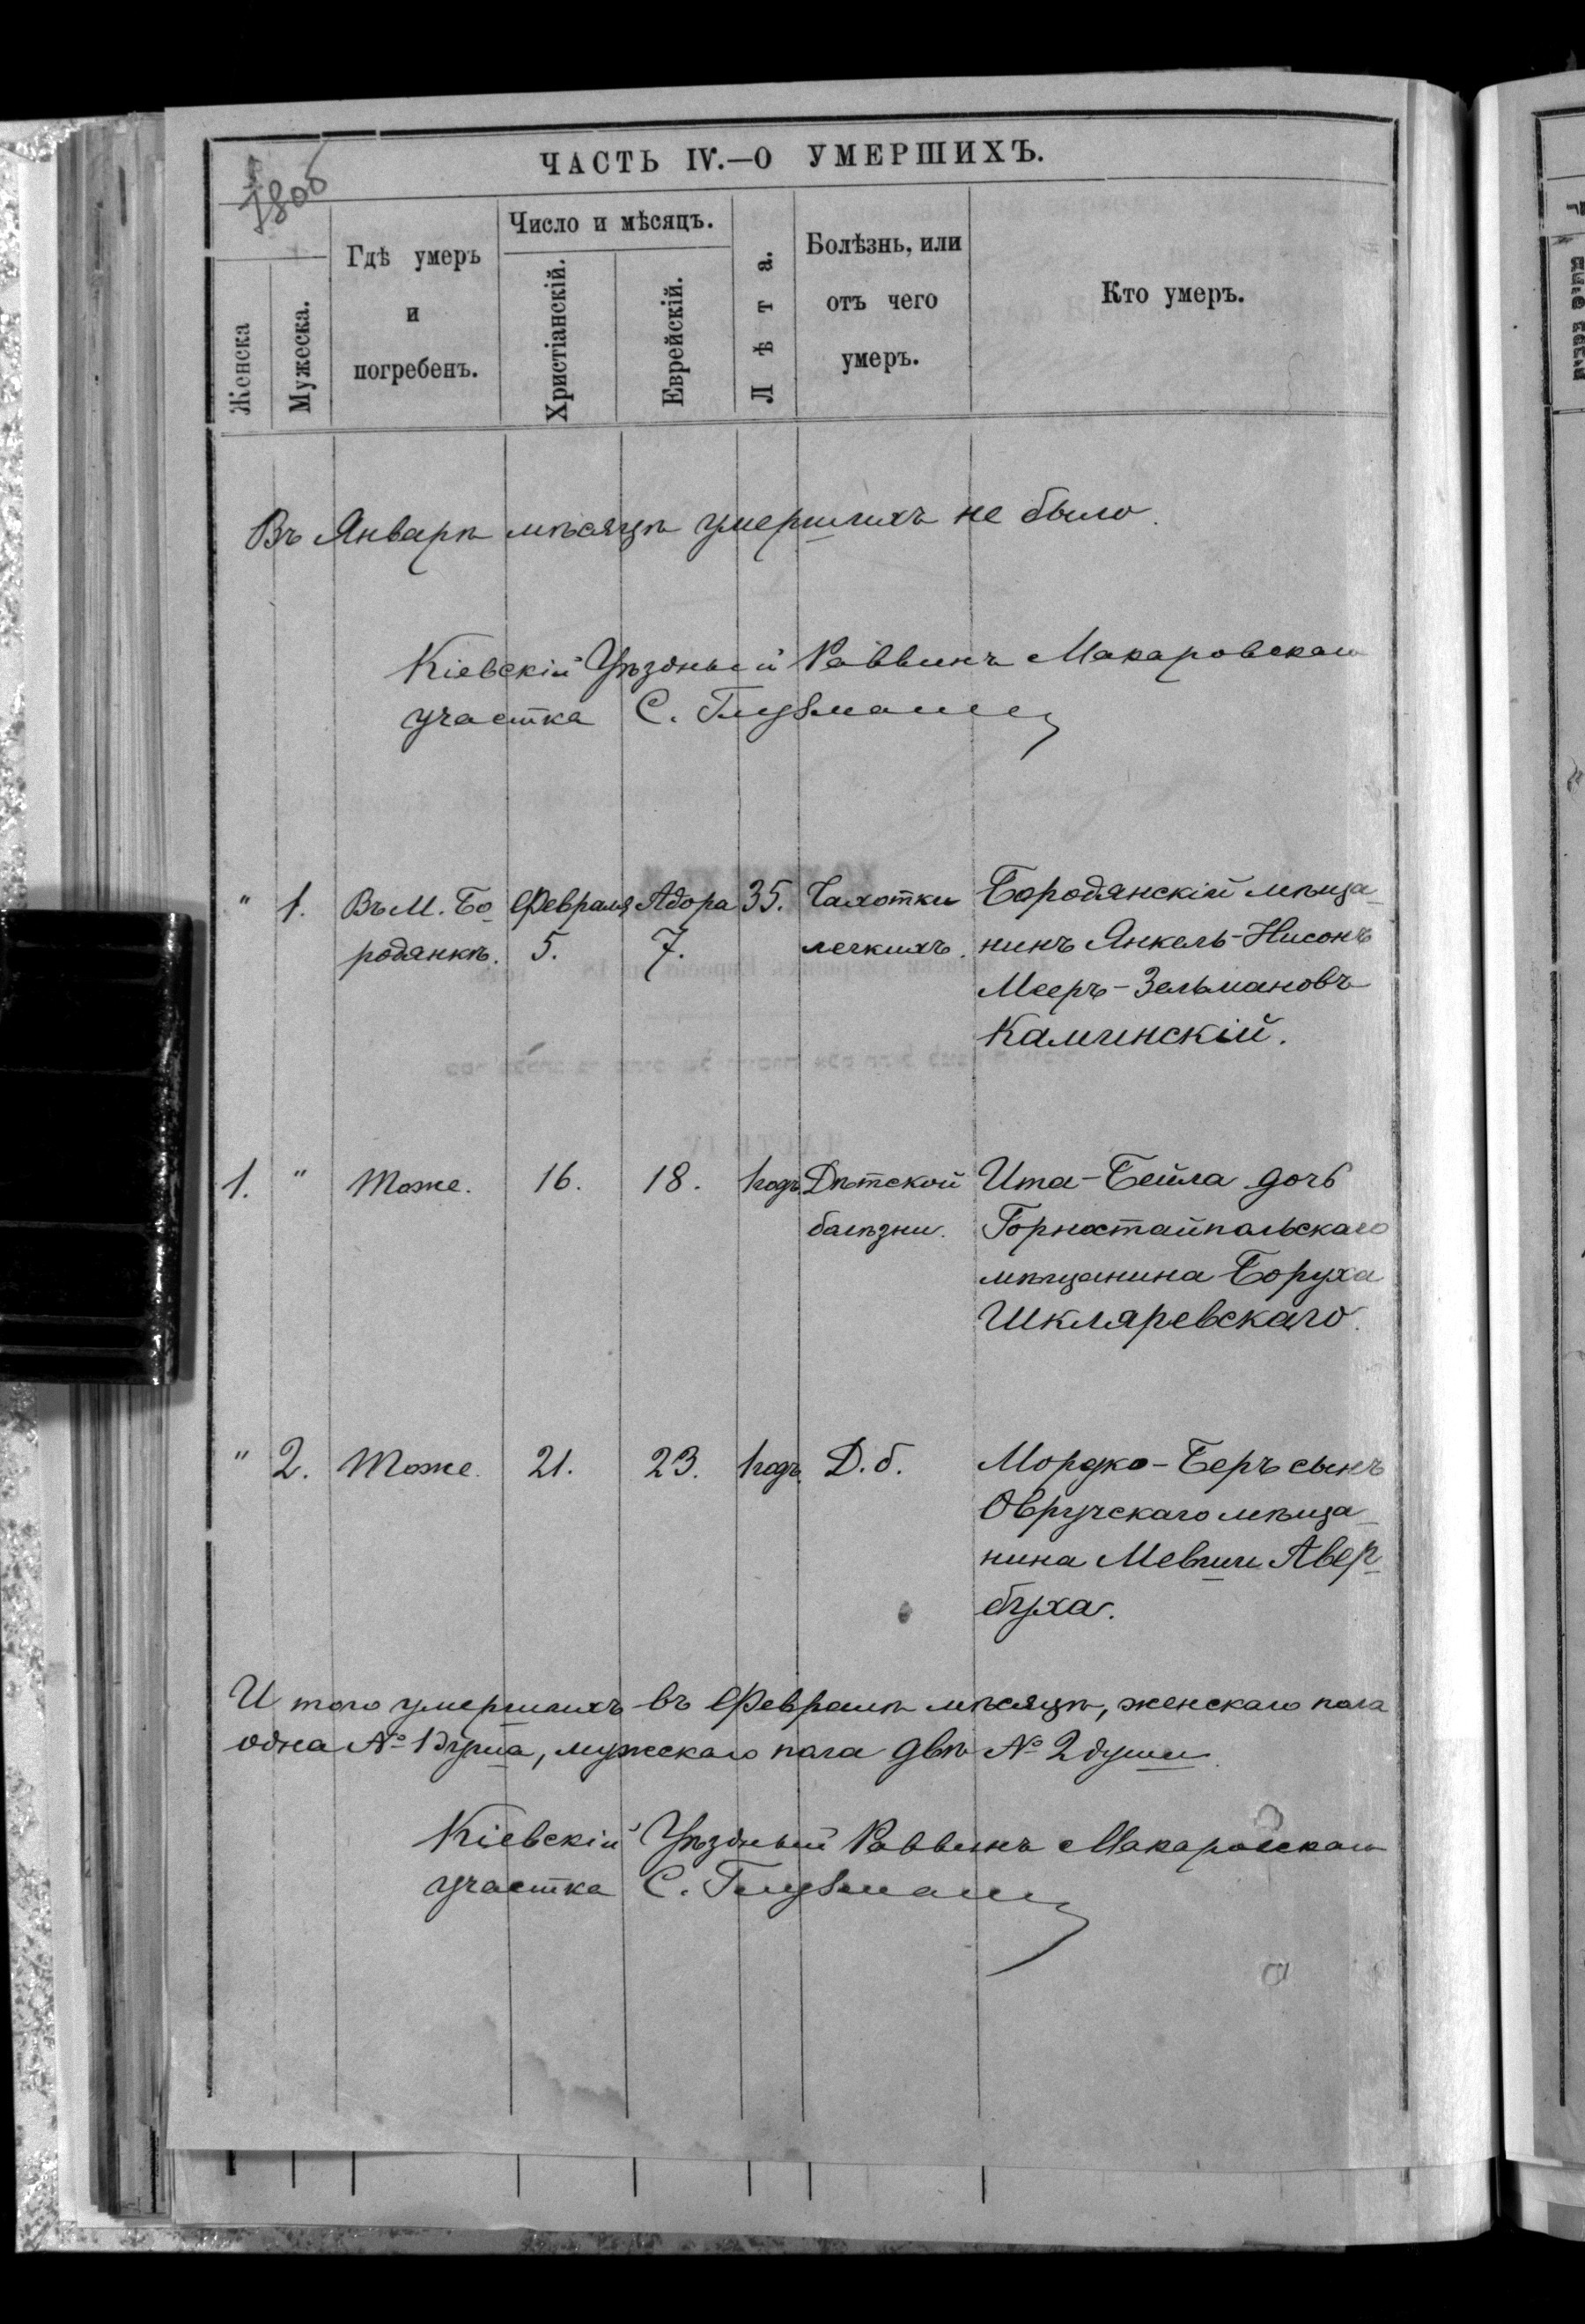 ЧАСТЬ IV.—О УМЕРШИХЪ.
Женска
Мужеска.
Гдѣ умеръ
и
погребенъ.
Число и мѣсяцъ.
Христіанскій.
Еврейскій.
Лѣта.
Болѣзнь, или
отъ чего
умеръ.
Кто умеръ.
Въ Январѣ мѣсяцѣ умершихъ не было.
Кіевскій Уѣздный Раввинъ Макаровскаго
участка С. Глузманъ
" 1. Въ М. Бо Февраля Адора 35. Чахотки Бородянскій мѣща-
родянкѣ. 5. 7. легкихъ. нинъ Янкель-Нисонъ
Мееръ-Зельмановъ
Каминскій.
1. " Тоже. 16. 18. 1годъ Дѣтской Ита-Бейла дочь
балѣзни. Горностайпольскаго
мѣщанина Боруха
Шкляревскаго.
" 2. Тоже. 21. 23. 1годъ. Д. б. Мордко-Беръ сынъ
Овручскаго мѣща-
нина Мевши Авер-
буха.
И того умершихъ въ Февралѣ мѣсяцѣ, женскаго пола
одна № 1 душа, мужскаго пола двѣ № 2 души.
Кіевскій Уѣздный Раввинъ Макаровскаго
участка С. Глузманъ